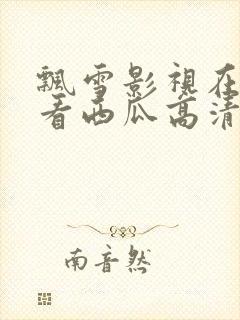 飄雪影視在
看西瓜高清
南音然